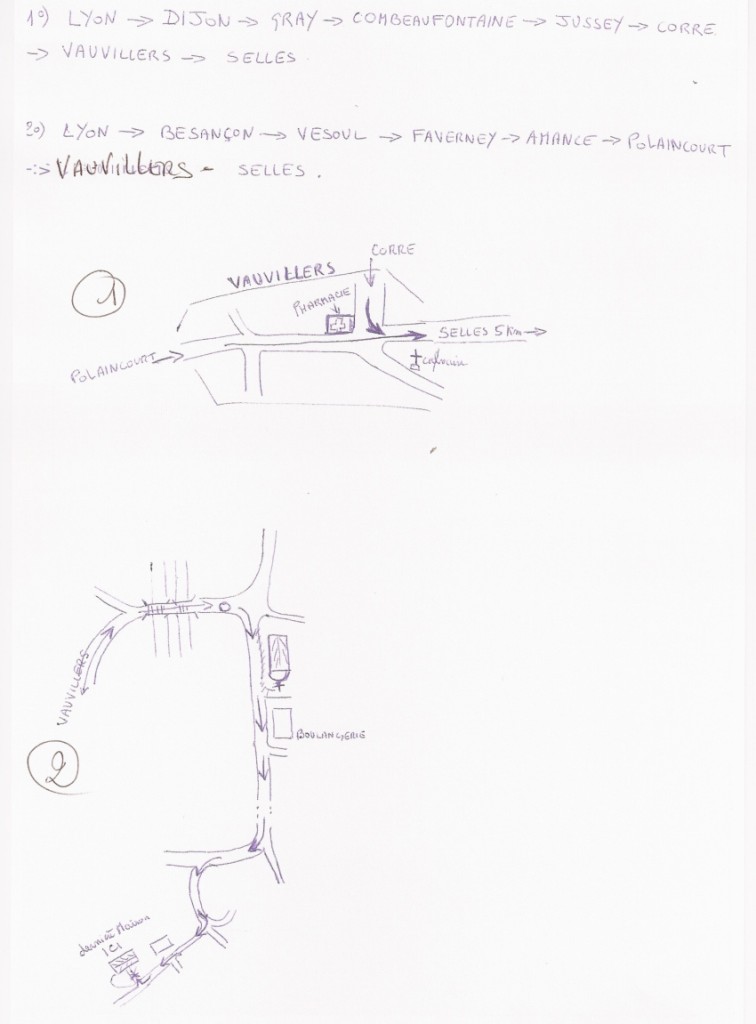 1°) LYON → DIJON → GRAY → COMBEAUFONTAINE → JUSSEY → CORRE
→ VAUVILLERS → SELLES
2°) LYON → BESANÇON → VESOUL → FAVERNEY → AMANCE → POLAINCOURT
→ VAUVILLERS - SELLES.
CORRE
VAUVILLERS
1
PHARMACIE
SELLES 5 Km →
POLAINCOURT
calvaire
VAUVILLERS
BOULANGERIE
2
dernière Maison
ICI